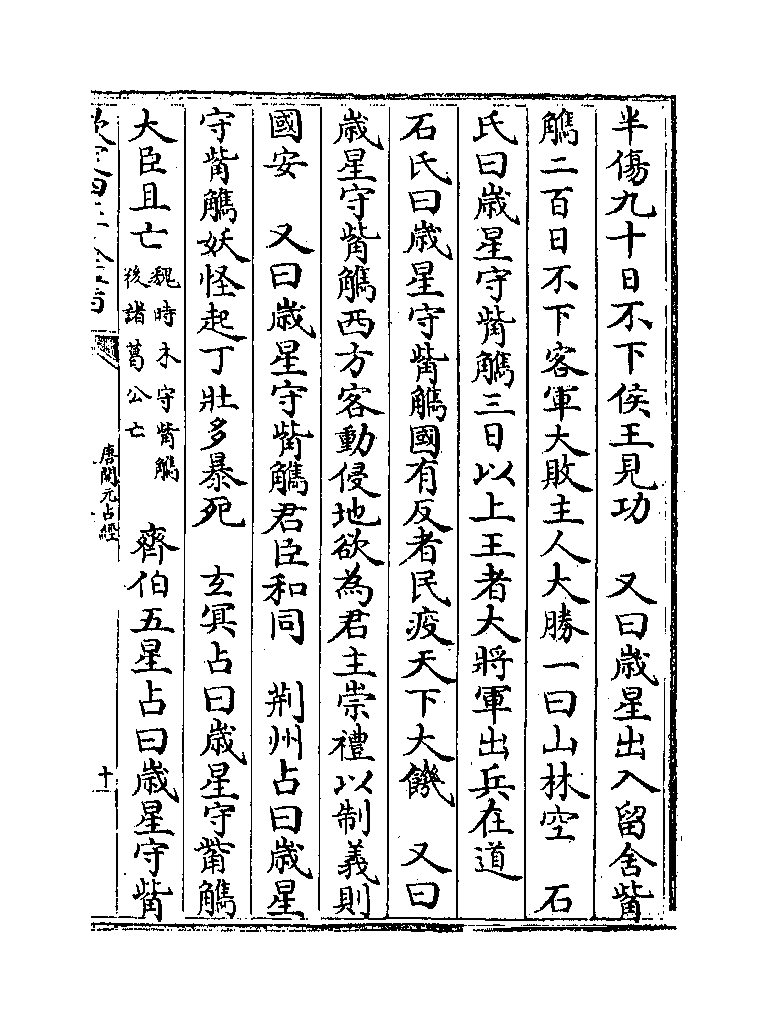 半傷九十日不下侯王見功　又曰歳星出入留舍觜
觿二百日不下客軍大敗主人大勝一曰山林空　石
氏曰歳星守觜觿三日以上王者大將軍出兵在道
石氏曰歳星守觜觿國有反者民疫天下大饑　又曰
歳星守觜觿西方客動侵地欲為君主崇禮以制義則
國安　又曰歳星守觜觿君臣和同　荆州占曰歳星
守觜觿妖怪起丁壯多暴死　玄冥占曰歳星守觜觿
大臣且亡魏時木守觜觿後諸葛公亡　齊伯五星占曰歳星守觜
唐開元占經
十一